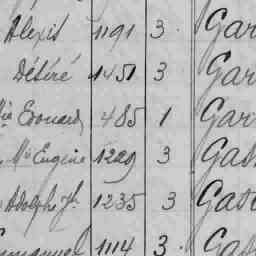 Alexis 1191 3 Gar
Désiré 1451 3 Gar
Édouard 485 1 Gar
Mie Eugène 1229 3 Gas
Adolphe Jh 1235 3 Gas
Emmanuel 1114 3 Gas